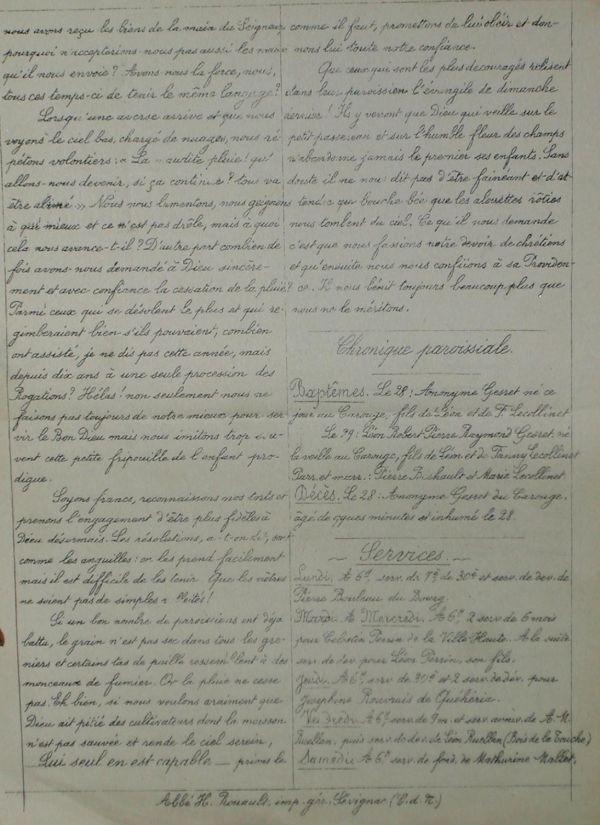 nous avons reçu les biens de la main du Seigneur
pourquoi n'accepterions-nous pas aussi les maux
qu'il nous envoie? Avons nous la force, nous,
tous ces temps-ci de tenir le même langage?
Lorsqu'une averse arrive et que nous
voyons le ciel bas, chargé de nuages, nous ré-
pétons volontiers: « La maudite pluie! qu'
allons-nous devenir, si ça continue? tout va
être abîmé » Nous nous lamentons, nous geignons
à qui mieux et ce n'est pas drôle, mais à quoi
cela nous avance-t-il? D'autre part combien de
fois avons-nous demandé à Dieu sincère-
ment et avec confiance la cessation de la pluie?
Parmi ceux qui se désolent le plus et qui re-
gimberaient bien s'ils pouvaient, combien
ont assisté, je ne dis pas cette année, mais
depuis dix ans à une seule procession des
Rogations? Hélas! non seulement nous ne
faisons pas toujours de notre mieux pour ser-
vir le Bon Dieu mais nous imitons trop sou-
vent cette petite fripouille de l'enfant pro-
digue.
Soyons francs, reconnaissons nos torts et
prenons l'engagement d'être plus fidèles à
Dieu désormais. Les résolutions, a-t-on dit, sont
comme les anguilles: on les prend facilement
mais il est difficile de les tenir. Que les nôtres
ne soient pas de simples
Si un bon nombre de paroissiens ont déjà
battu, le grain n'est pas sec dans tous les gre-
niers et certains tas de paille ressemblent à des
monceaux de fumier. Or la pluie ne cesse
pas. Eh bien, si nous voulons vraiment que
Dieu ait pitié des cultivateurs dont la moisson
n'est pas sauvée et rende le ciel serein,
Lui seul en est capable — prions le
comme il faut, promettons de lui obéir et don-
nons lui toute notre confiance.
Que ceux qui sont les plus découragés relisent
dans leur paroissien l'évangile de dimanche
dernier! Ils y verront que Dieu qui veille sur le
petit passereau et sur l'humble fleur des champs
n'abandonne jamais le premier ses enfants. Sans
doute il ne nous dit pas d'être fainéant et d'at-
tendre que bouche bée que les alouettes rôties
nous tombent du ciel. Ce qu'il nous demande
c'est que nous fassions notre devoir de chrétiens
et qu'ensuite nous nous confiions à sa Providen-
ce. Il nous bénit toujours beaucoup plus que
nous ne le méritons.
Chronique paroissiale.
Baptêmes. Le 28: Anonyme Gesret né ce
jour au Carouge, fils de Léon et de F. Lecollinet
Le 29: Léon Robert Pierre Raymond Gesret, né
la veille au Carouge, fils de Léon et de Fanny Lecollinet
Parr. et marr.: Pierre Bshault et Marie Lecollinet
Décès. Le 28: Anonyme Gesret du Carouge,
âgé de qques minutes et inhumé le 28.
~ Services. ~
Lundi, A 6h. serv. du 7e de 30e et serv. de dev. de
Pierre Bouleuc du Bourg.
Mardi & Mercredi. A 6h. 2 serv de 6 mois
pour Celestin Perrin de la Ville Haute. A la suite
serv. de dev. pour Léon Perrin, son fils.
Jeudi. A 6h. serv. de 30e et 2 serv. de dév. pour
Joséphine Rouvrais de Quéhéria.
Vendredi A 6h. serv. de 9m. et serv. anniv. de A. M.
Ruellan, puis serv. de dev. de Léon Ruellan (Bois de la Touche)
Samedi. A 6h. serv. de fond. de Mathurine Mallet.
Abbé H. Rouault, imp. gér. Sévignac (C. d. N.)